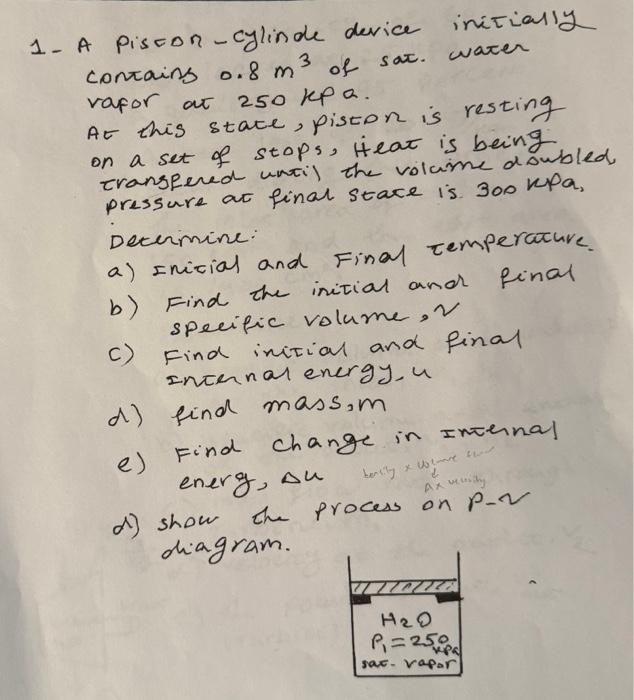 1- A Piston-Cylinde device initially
contains 0.8 m³ of sat. water
vapor at 250 kpa.
At this state, piston is resting
on a set of stops, Heat is being
transfered until the volume doubled,
pressure at final state is 300 kpa,
Determine:
a) Initial and Final temperature.
b) Find the initial and final
specific volume, v
c) Find initial and final
Internal energy, u
d) find mass, m
e) Find change in Internal
energ, Δu
d) show the process on P-v
diagram.
H2O
P1=250 kpa
sat- vapor